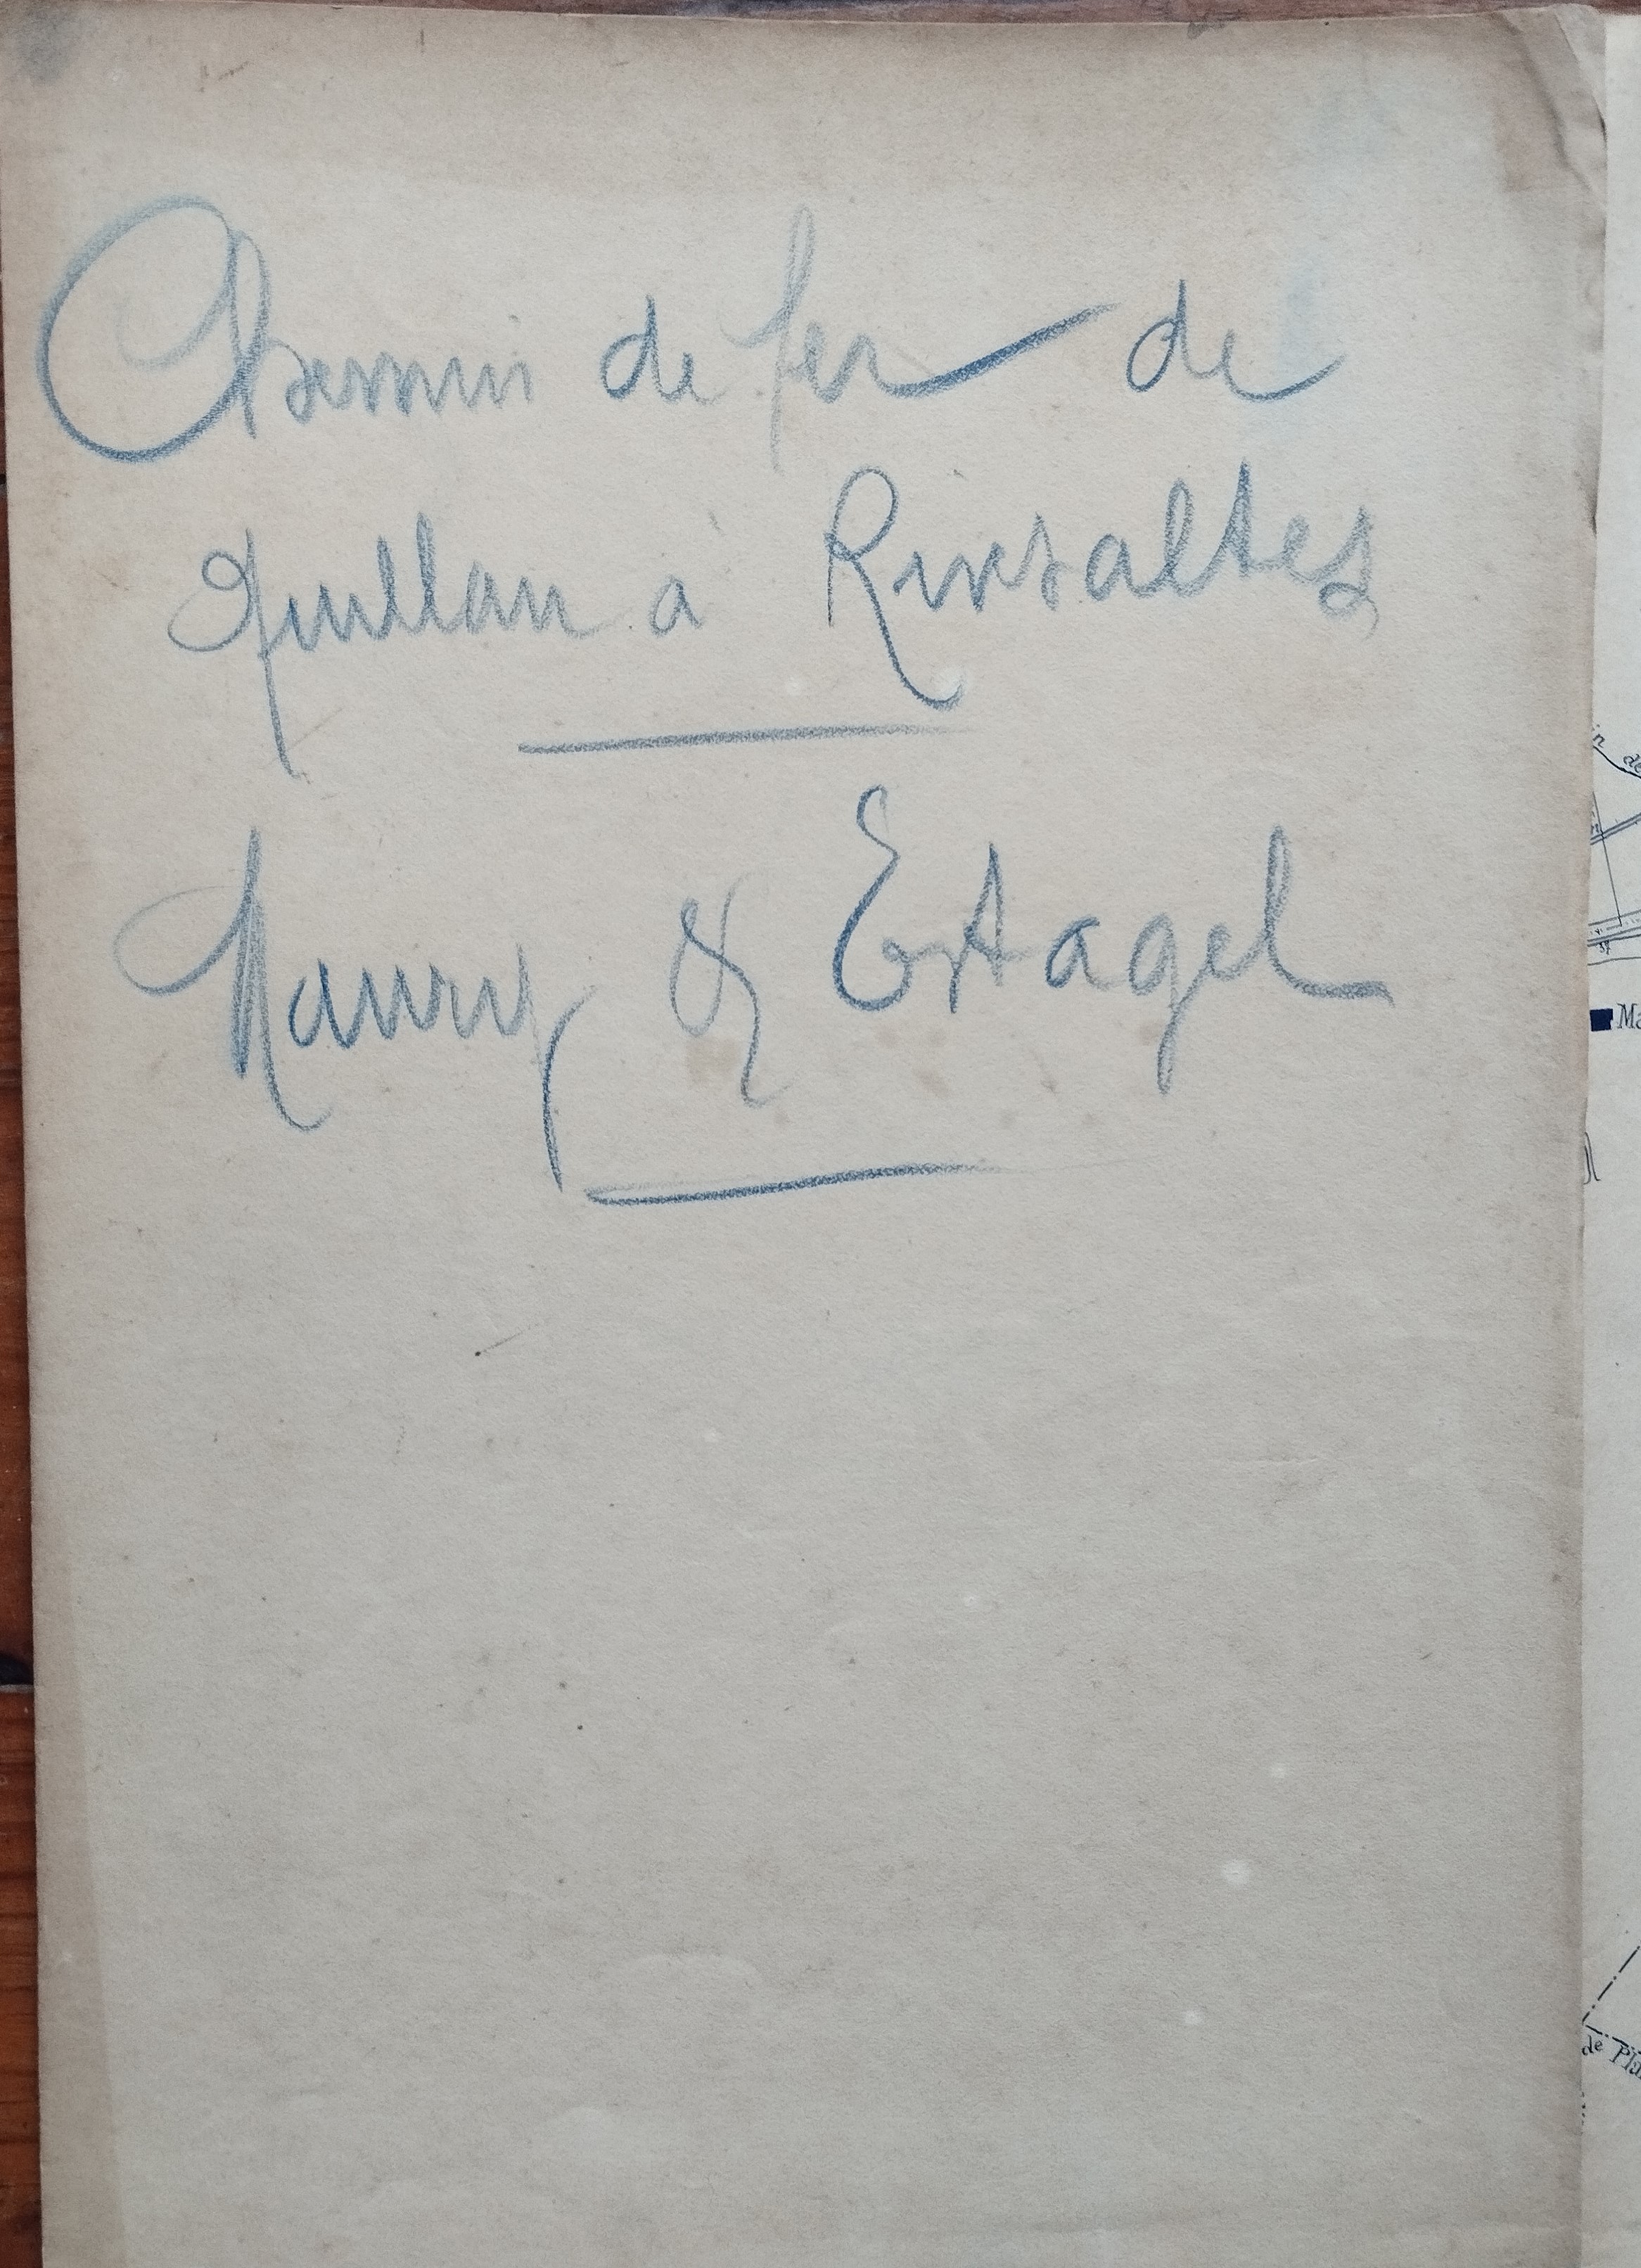 Chemin de fer de
Quillan à Rivesaltes
Maury & Estagel
Ma
de Pla